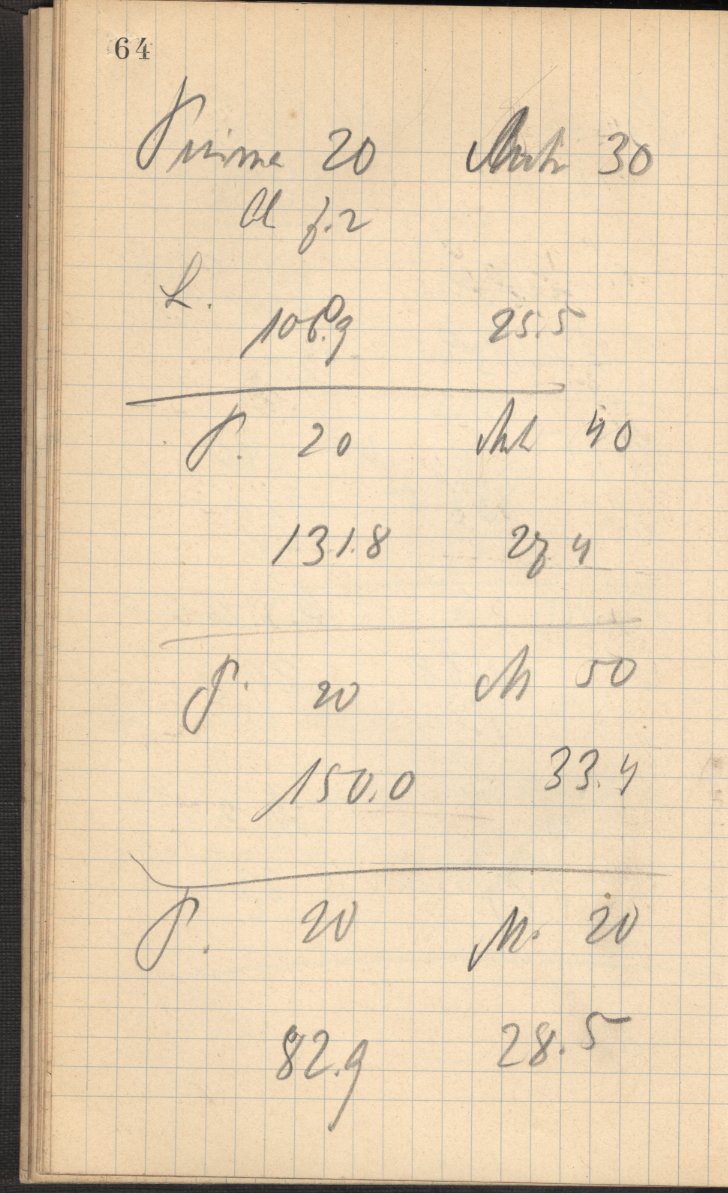 64
Prisma 20 30
Cl f. 2
L.
106.9 25.5
P. 20 40
131.8 27 4
P. 20 M 50
150.0 33.4
P. 20 M. 20
82.9 28.5